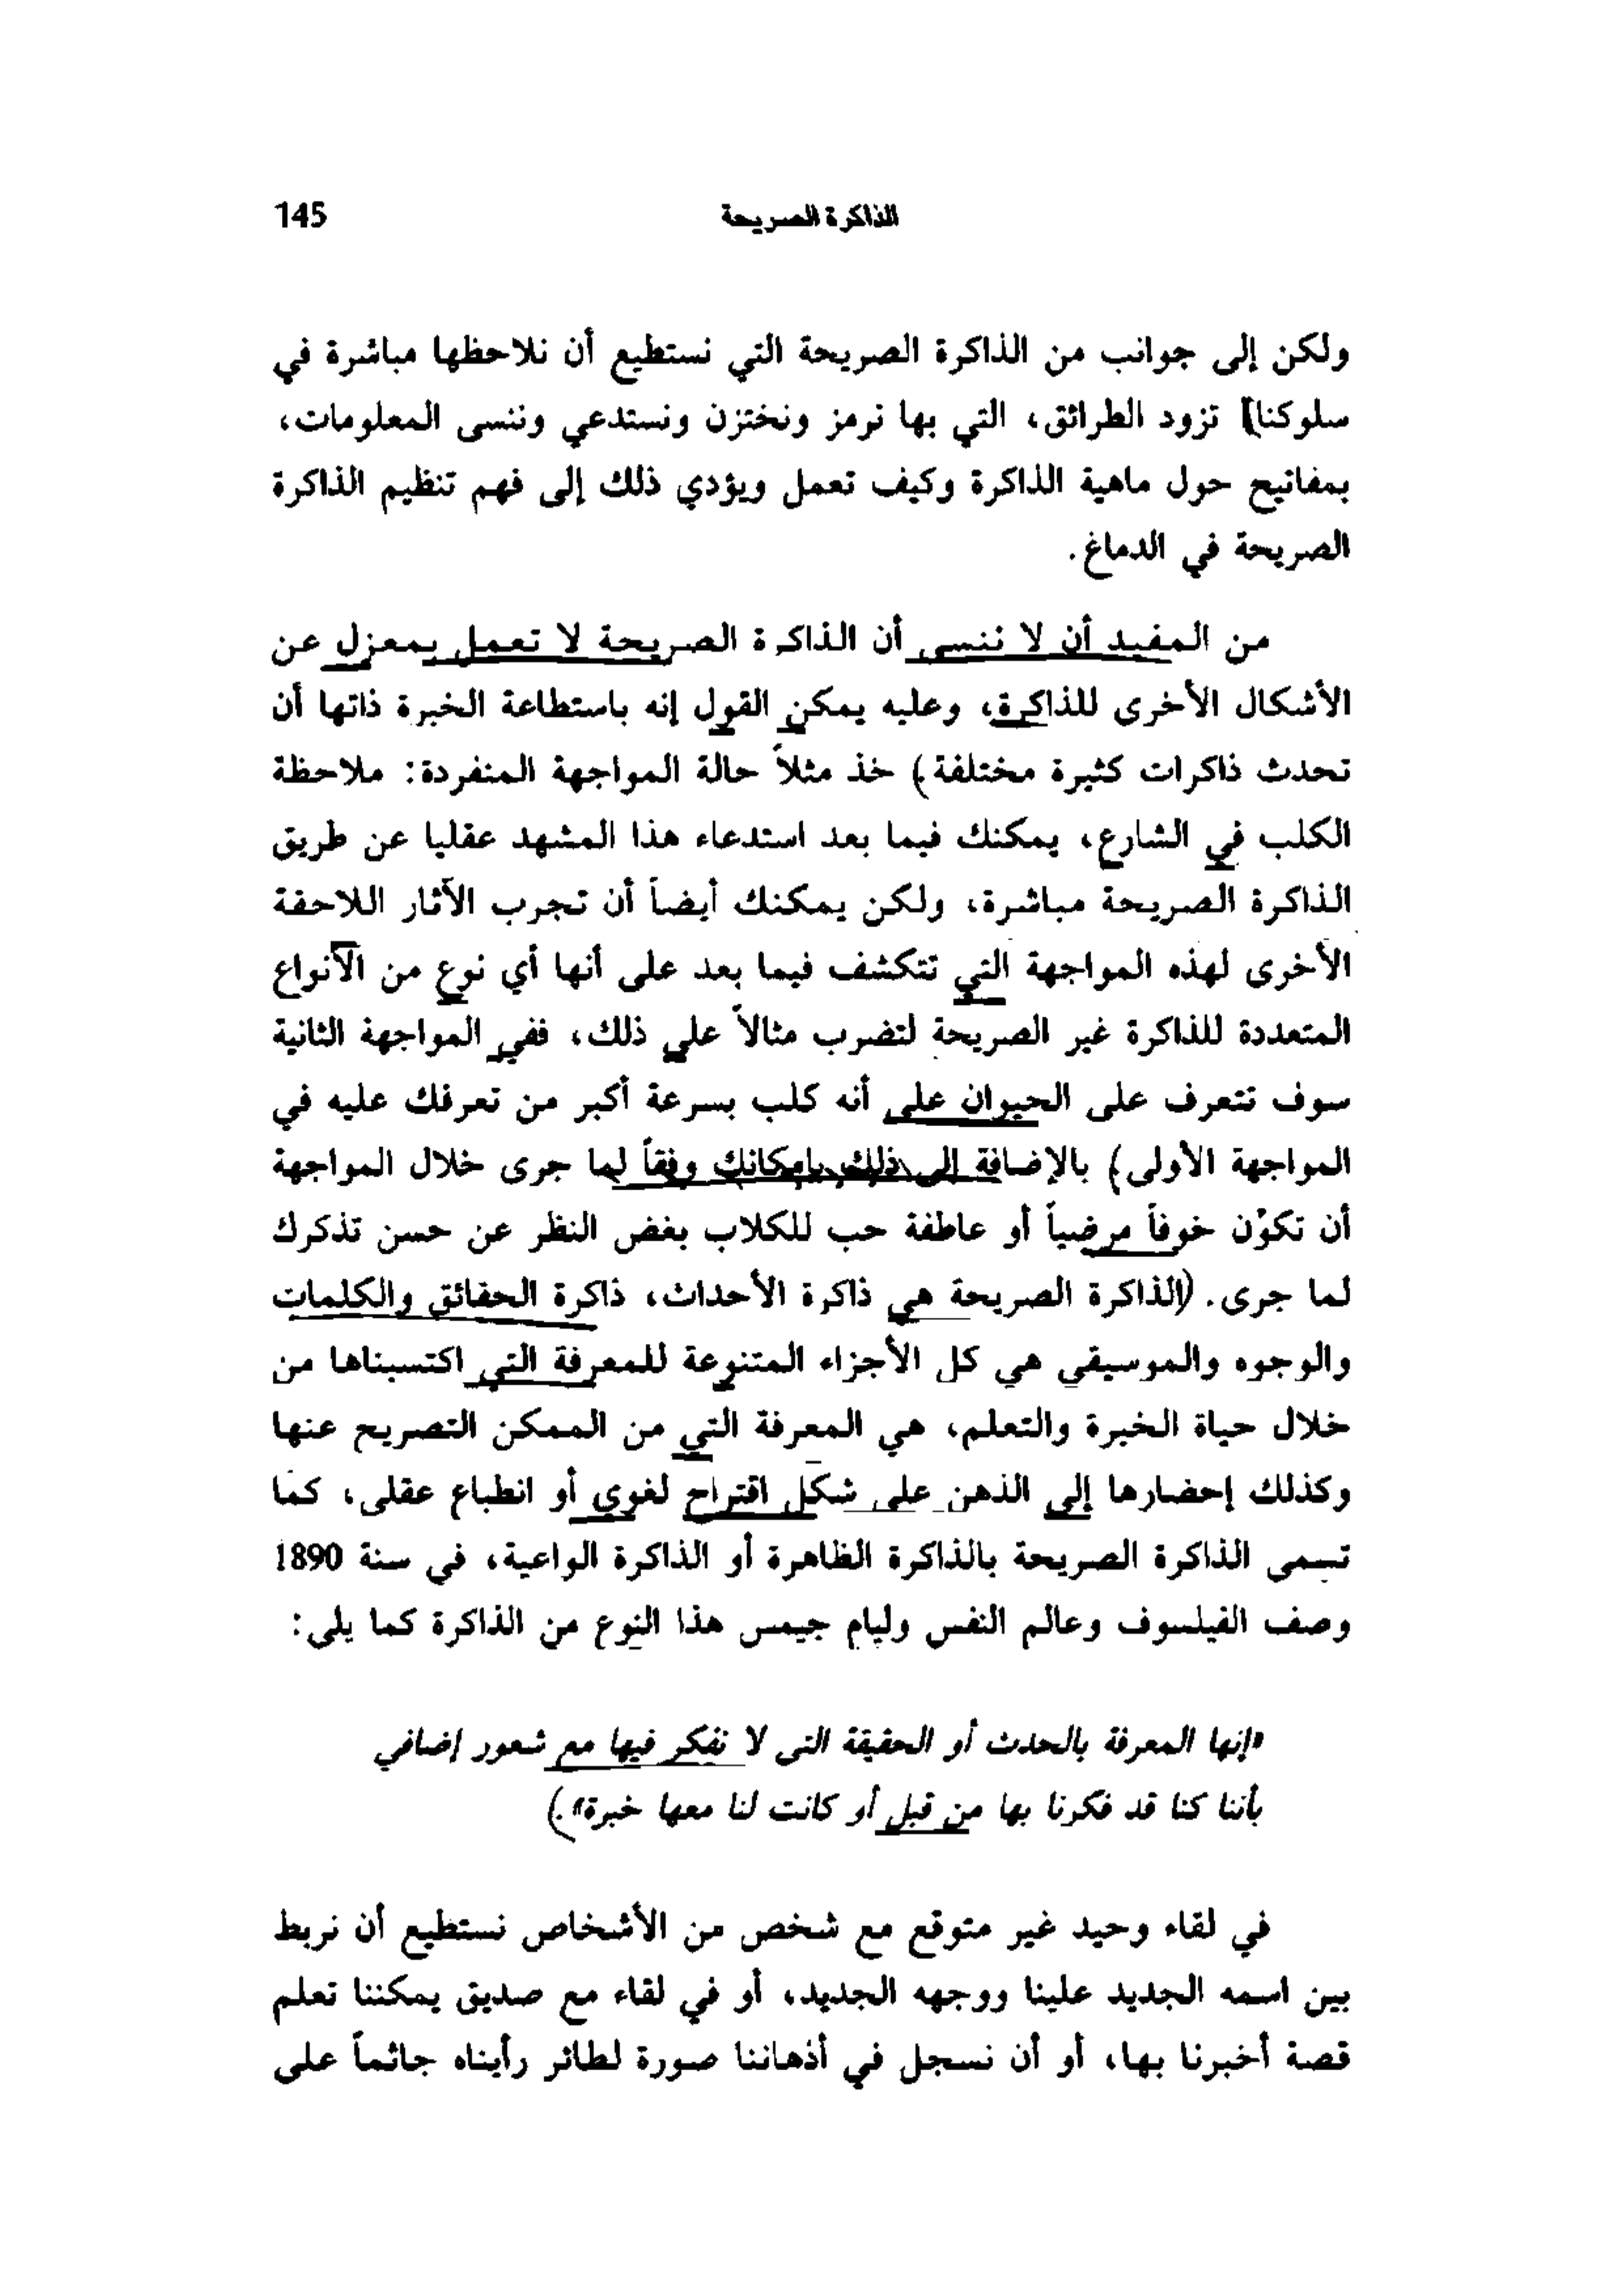 الذاكرة الصريحة 145
ولكن إلى جوانب من الذاكرة الصريحة التي نستطيع أن نلاحظها مباشرة في
سلوكنا] تزود الطرائق، التي بها نرمز ونختزن ونستدعي وننسى المعلومات،
بمفاتيح حول ماهية الذاكرة وكيف تعمل ويؤدي ذلك إلى فهم تنظيم الذاكرة
الصريحة في الدماغ.
من المفيد أن لا ننسى أن الذاكرة الصريحة لا تعمل بمعزل عن
الأشكال الأخرى للذاكرة، وعليه يمكن القول إنه باستطاعة الخبرة ذاتها أن
تحدث ذاكرات كثيرة مختلفة) خذ مثلاً حالة المواجهة المنفردة: ملاحظة
الكلب في الشارع، يمكنك فيما بعد استدعاء هذا المشهد عقليا عن طريق
الذاكرة الصريحة مباشرة، ولكن يمكنك أيضاً أن تجرب الآثار اللاحقة
الأخرى لهذه المواجهة التي تتكشف فيما بعد على أنها أي نوع من الأنواع
المتعددة للذاكرة غير الصريحة لتضرب مثالاً على ذلك، ففي المواجهة الثانية
سوف تتعرف على الحيوان على أنه كلب بسرعة أكبر من تعرفك عليه في
المواجهة الأولى) بالإضافة إلى ذلك بإمكانك وفقاً لما جرى خلال المواجهة
أن تكوّن خوفاً مرضياً أو عاطفة حب للكلاب بغض النظر عن حسن تذكرك
لما جرى. (الذاكرة الصريحة هي ذاكرة الأحداث، ذاكرة الحقائق والكلمات
والوجوه والموسيقى هي كل الأجزاء المتنوعة للمعرفة التي اكتسبناها من
خلال حياة الخبرة والتعلم، هي المعرفة التي من الممكن التصريح عنها
وكذلك إحضارها إلى الذهن على شكل اقتراح لغوي أو انطباع عقلي، كما
تسمى الذاكرة الصريحة بالذاكرة الظاهرة أو الذاكرة الواعية، في سنة 1890
وصف الفيلسوف وعالم النفس وليام جيمس هذا النوع من الذاكرة كما يلي:
«إنها المعرفة بالحدث أو الحقيقة التي لا نفكر فيها مع شعور إضافي
بأننا كنا قد فكرنا بها من قبل أو كانت لنا معها خبرة».)
في لقاء وحيد غير متوقع مع شخص من الأشخاص نستطيع أن نربط
بين اسمه الجديد علينا ووجهه الجديد، أو في لقاء مع صديق يمكننا تعلم
قصة أخبرنا بها، أو أن نسجل في أذهاننا صورة لطائر رأيناه جاثماً على